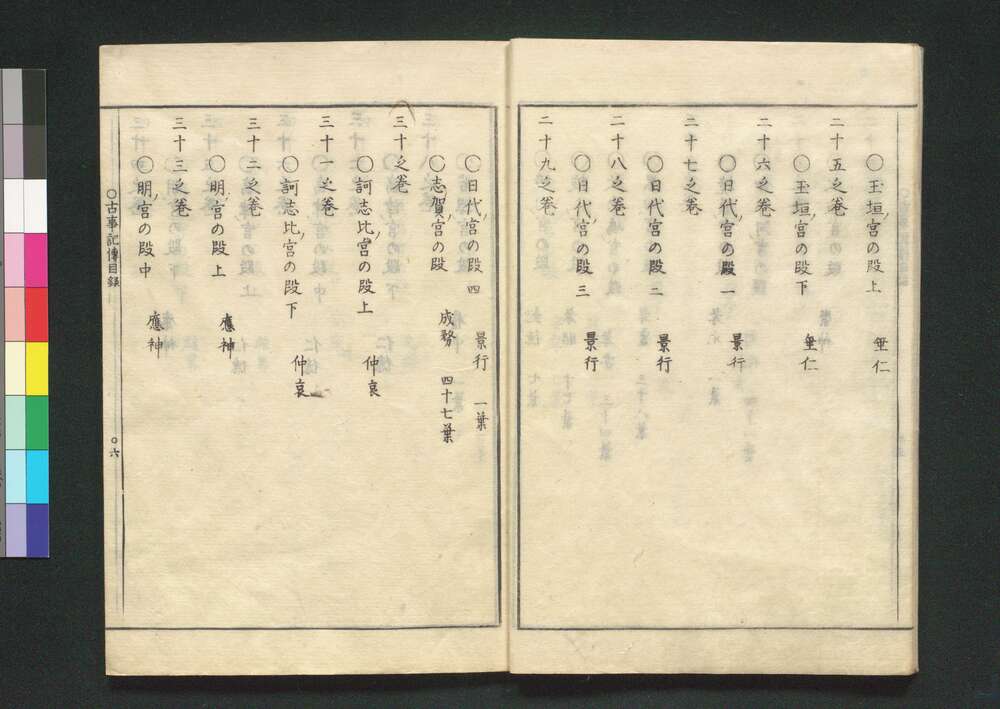 〇玉垣宮の段上 垂仁
二十五之巻
〇玉垣宮の段下 垂仁
二十六之巻
〇日代宮の段一 景行
二十七之巻
〇日代宮の段二 景行
二十八之巻
〇日代宮の段三 景行
二十九之巻
〇日代宮の段四 景行 一葉
〇志賀宮の段 成務 四十七葉
三十之巻
〇訶志比宮の段上 仲哀
三十一之巻
〇訶志比宮の段下 仲哀
三十二之巻
〇明宮の段上 應神
三十三之巻
〇明宮の段中 應神
〇古事記傳目録 〇六